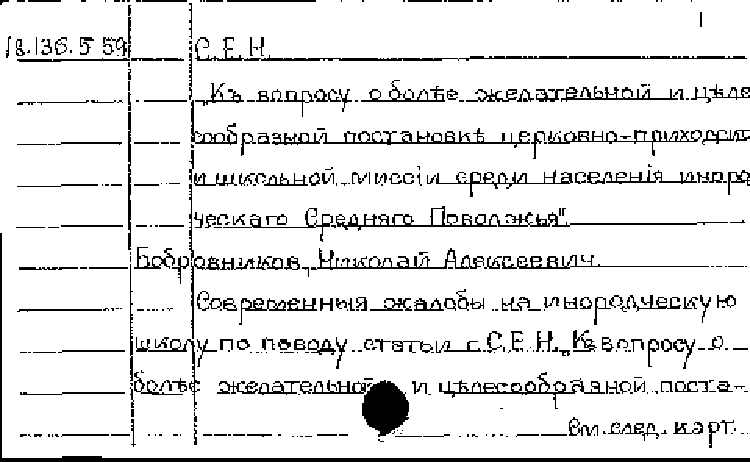 18.136.5 59
С.Е.Н.
„Къ вопросу о болѣе желательной и цѣле
сообразной постановкѣ церковно-приходско
и школьной миссіи среди населенія иноро
ческаго Средняго Поволжья".
Бобровников, Николай Алексеевич.
Современныя жалобы на инородческую
школу по поводу статьи г. С.Е.Н. „Къ вопросу о
болѣе желательной и цѣлесообразной поста-
См. след. карт.